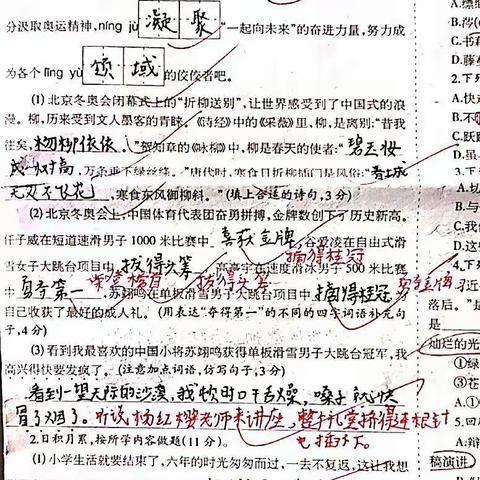 分汲取奥运精神,níng jù 凝聚 “一起向未来”的奋进力量,努力成
为各个lǐng yù 领域 的佼佼者吧。
(1)北京冬奥会闭幕式上的“折柳送别”,让世界感受到了中国式的浪
漫。柳,历来受到文人墨客的青睐。《诗经》中的《采薇》里,柳,是离别:“昔我
往矣,杨柳依依。”贺知章的《咏柳》中,柳是春天的使者:“碧玉妆
成一树高,万条垂下绿丝绦。”唐代时,寒食日折柳插门是风俗:“春城
无处不飞花,寒食东风御柳斜。”(填上合适的诗句,3分)
(2)北京冬奥会上,中国体育代表团奋勇拼搏,金牌数创下了历史新高。
任子威在短道速滑男子1000米比赛中 喜获金牌,谷爱凌在自由式滑
雪女子大跳台项目中 拔得头筹 摘得桂冠,高亭宇在速度滑冰男子500米比赛
中 勇夺第一 拔得头筹,苏翊鸣在单板滑雪男子大跳台项目中 摘得桂冠,为
自己收获了最好的成人礼。(用表达“夺得第一”的不同的四字词语补充句
子,4分)
(3)看到我最喜欢的中国小将苏翊鸣获得单板滑雪男子大跳台冠军,我
高兴得快要发疯了。(注意加点词语,仿写句子,3分)
看到一望无际的沙漠,我顿时口干舌燥,嗓子就快
冒了烟了。听说杨红樱老师来讲座,整个礼堂挤得连根针
也插不下。
2.日积月累,按所学内容做题(11分)。
(1)小学生活就要结束了,六年的时光匆匆而过,一去不复返,这让我想
B.
C.书
D.藤
2.下列
A.快
B.不
C.跃
D.虽
3.
A.切
B.与
C.我
D.这
4.下列
近
落后。”
是
灿烂的光
①绿
③花
A.①
5.回
A.辩
稿演讲